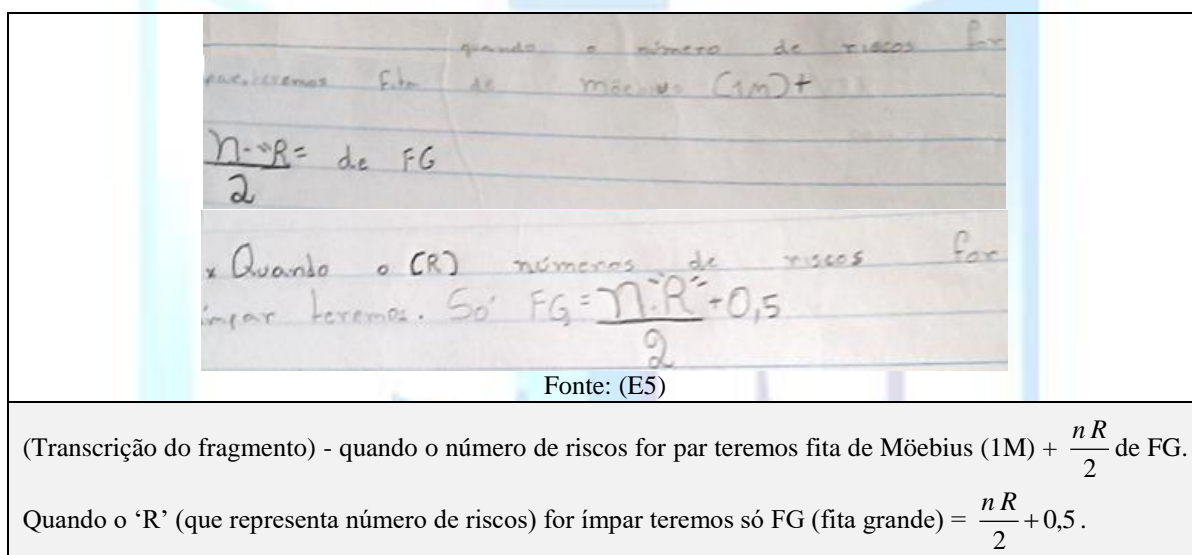 quando o número de riscos for
par teremos fita de Möebius (1M) +
n·"R" = de FG
2
x Quando o (R) números de riscos for
ímpar teremos. Só FG = n·"R" + 0,5
2
Fonte: (E5)
(Transcrição do fragmento) - quando o número de riscos for par teremos fita de Möebius (1M) + n R / 2 de FG.
Quando o ‘R’ (que representa número de riscos) for ímpar teremos só FG (fita grande) = n R / 2 + 0,5 .